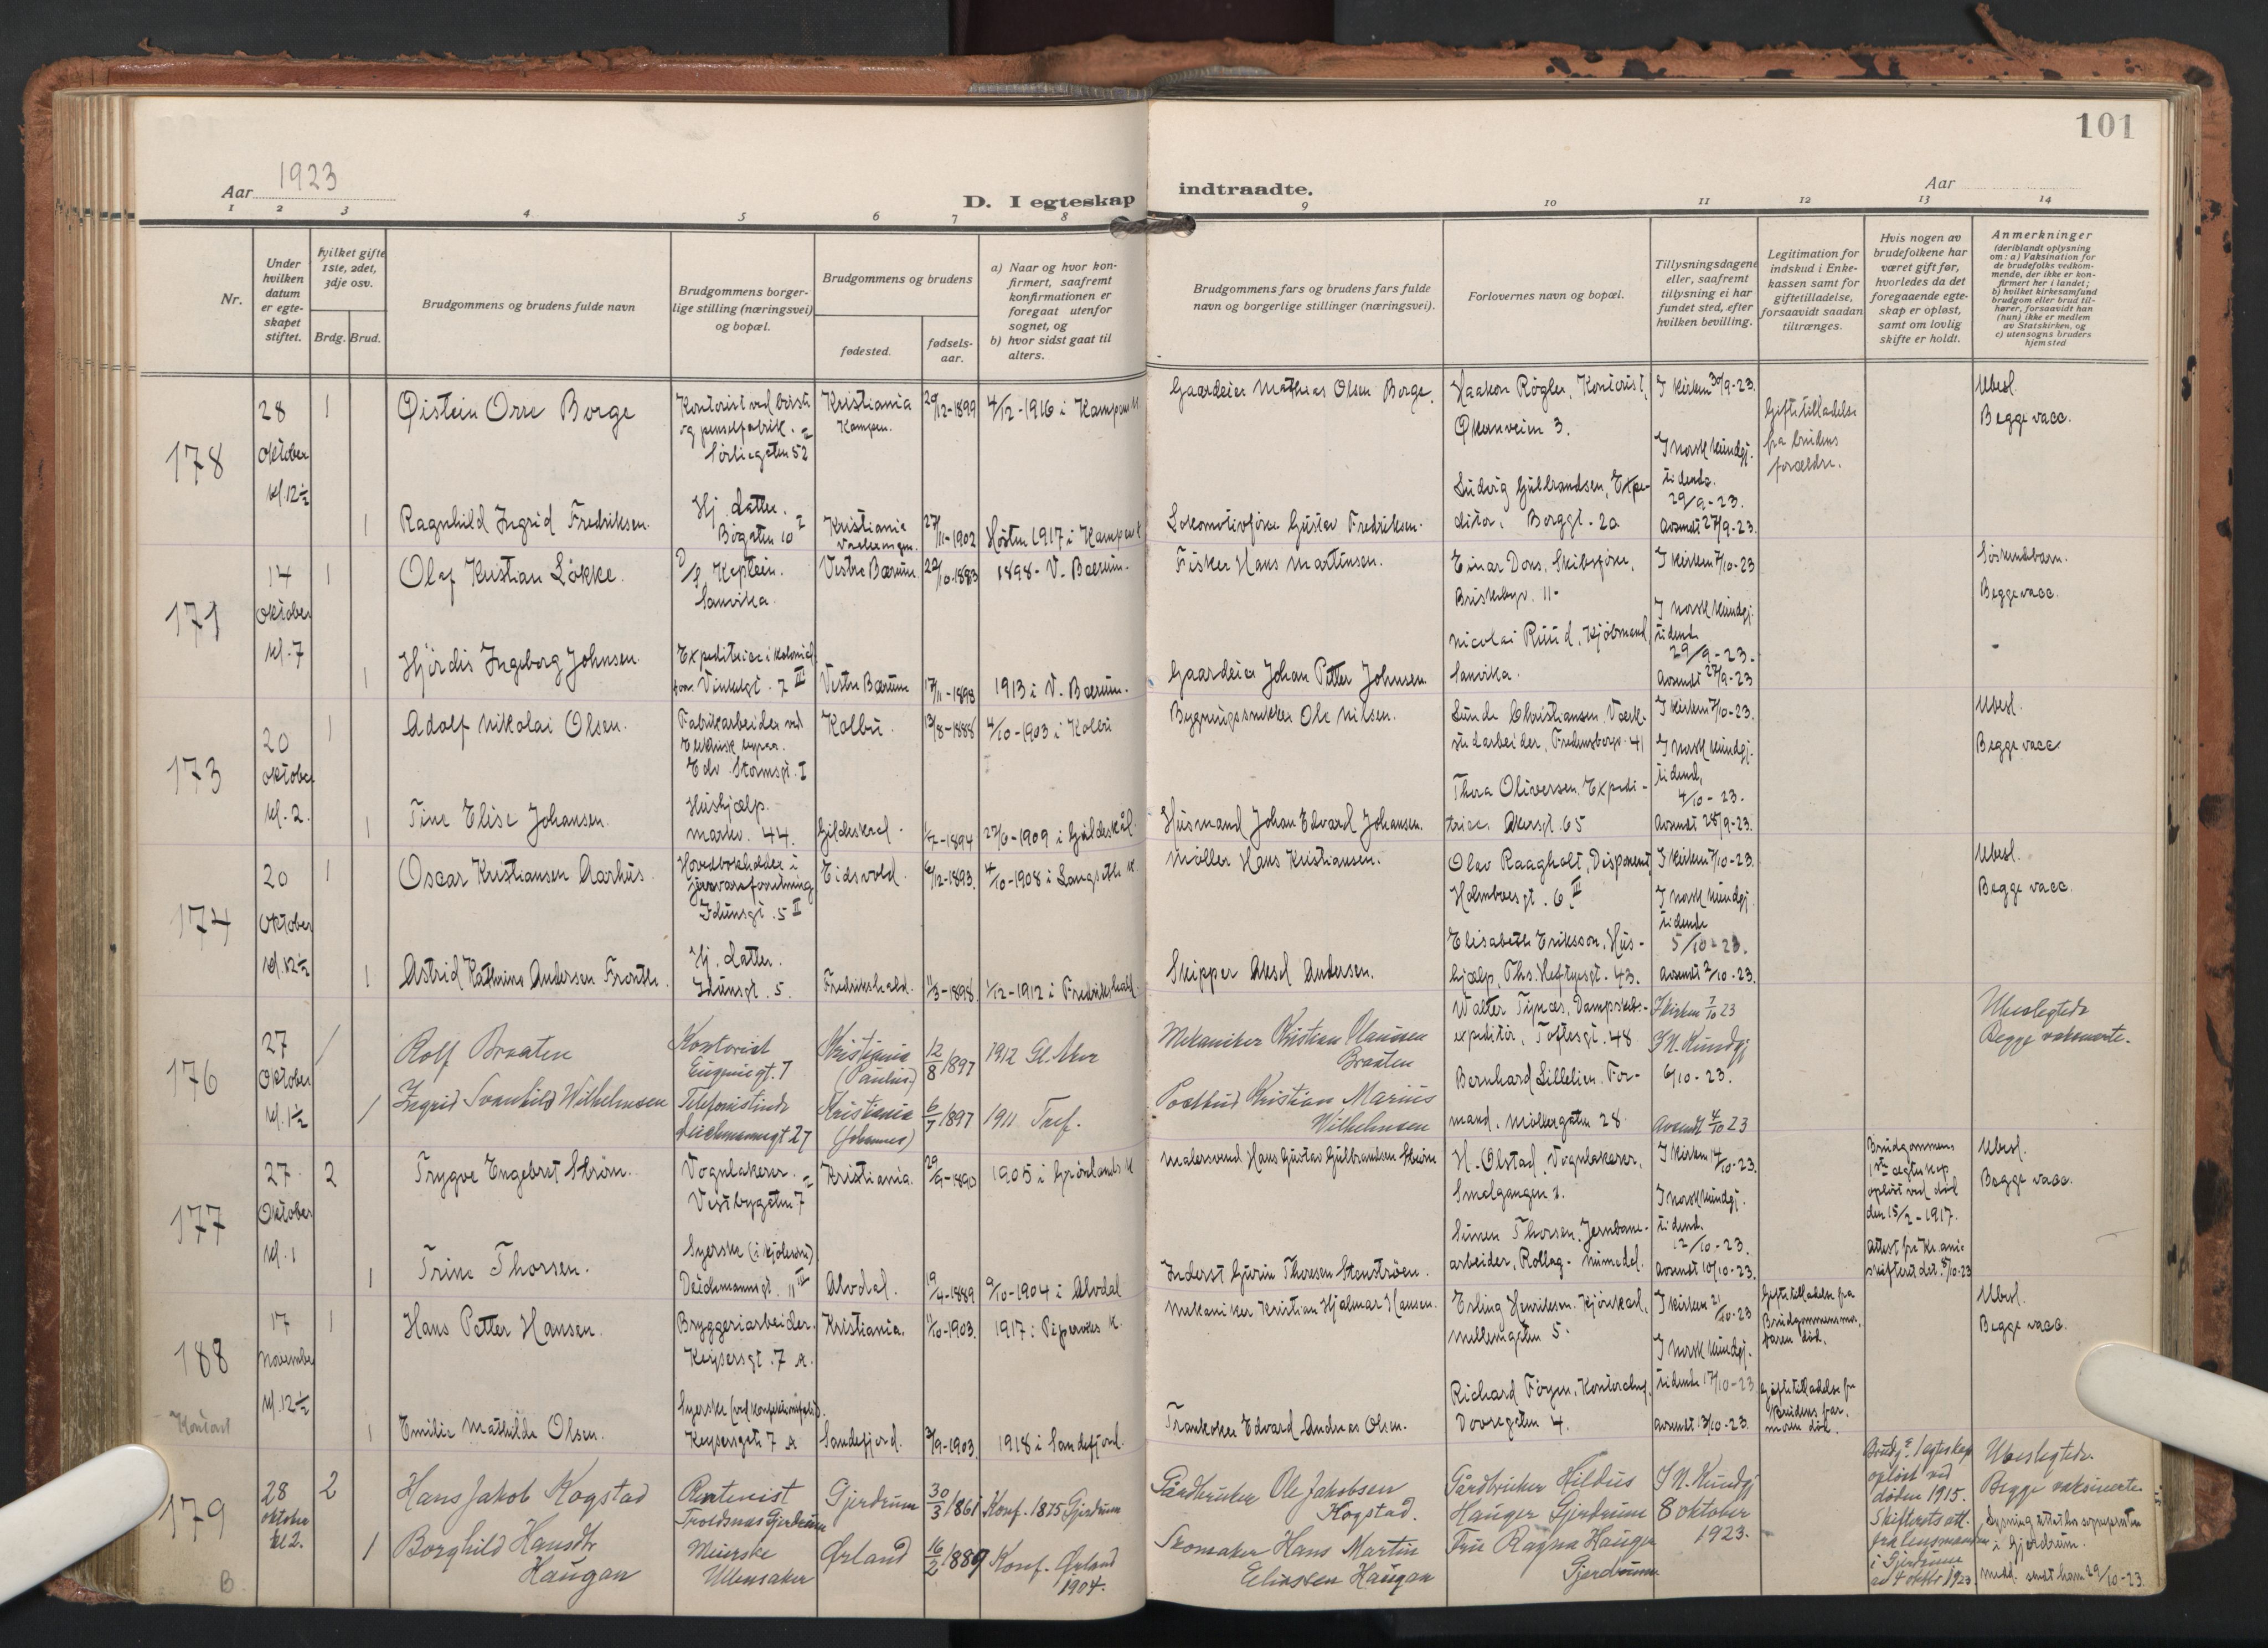 101
Aar 1923
D. I egteskap indtraadte.
Aar
1 2 3 4 5 6 7 8 9 10 11 12 13 14
Nr.
Under hvilken datum er egteskapet stiftet.
hvilket gifte 1ste, 2det, 3dje osv.
Brdg. Brud.
Brudgommens og brudens fulde navn
Brudgommens borgerlige stilling (næringsvei) og bopæl.
Brudgommens og brudens
fødested.
fødselsaar.
a) Naar og hvor konfirmert, saafremt konfirmationen er foregaat utenfor sognet, og
b) hvor sidst gaat til alters.
Brudgommens fars og brudens fars fulde navn og borgerlige stillinger (næringsvei).
Forlovernes navn og bopæl.
Tillysningsdagene eller, saafremt tillysning ei har fundet sted, efter hvilken bevilling.
Legitimation for indskud i Enkekassen samt for giftetilladelse, forsaavidt saadan tiltrænges.
Hvis nogen av brudefolkene har været gift før, hvorledes da det foregaaende egteskap er opløst, samt om lovlig skifte er holdt.
Anmerkninger (deriblandt oplysning om: a) Vaksination for de brudefolks vedkommende, der ikke er konfirmert her i landet; b) hvilket kirkesamfund brudgom eller brud tilhører, forsaavidt han (hun) ikke er medlem av Statskirken, og c) utensogns bruders hjemsted
178
28 Oktober kl. 12½
1 Øistein Orre Borge
Kontorist ved børste og penselfabrik. Sørligaten 52
Kristiania Kampen.
29/12-1899
4/12-1916 i Kampen
Gaardeier Mathias Olsen Borge.
Haakon Røgler, Kontorist, Økernveien 3.
I kirken 30/9-23.
I norsk kundgj. tidende. 29/9-23.
Avsendt 27/9-23.
Giftetilladelse fra brudens forældre.
Ubesl. Begge vacc.
1 Ragnhild Ingrid Fredriksen.
Hj. datter. Bøgaten 10
Kristiania
27/11-1902
Høsten 1917 i Kampen k
Lokomotivfører Gustav Fredriksen.
Ludvig Gulbrandsen, Expeditør, Borggt. 20
171
14 Oktober kl. 7
1 Olaf Kristian Løkke.
Kaptein. Sanvika.
Vestre Bærum.
22/10-1883
1898 - V. Baerum.
Fisker Hans Martinsen.
Einar Dons, Skibsfører, Briskebyv. 11.
Nicolai Ruud, Kjøbmand, Sanvika.
I kirken 7/10-23
I norsk kundgj. tidende 29/9-23.
Avsendt 27/9-23
Søskendebarn. Begge vacc.
1 Hjördis Ingeborg Johnsen.
Expeditrice i kolonialfor. Vinkelgt. 7 III
Vestre Bærum
17/11-1898
1913 i V. Baerum.
Gaardeier Johan Petter Johnsen
173
20 oktober kl. 2.
1 Adolf Nikolai Olsen.
Fabrikarbeider ved Elektrisk byraa. Edv. Stormsgt. I
Kolbu.
13/8-1888
4/10-1903 i Kolbu
Bygningssnekker Ole Nilsen.
Sunde Christiansen. Værkstedarbeider, Fredensborgv. 41
Thora Oliversen. Expeditrice. Akersgt. 65
I kirken 7/10-23.
I norsk kundgj. tidend. 4/10-23.
Avsendt 28/9-23.
Ubesl. Begge vacc.
1 Tine Elise Johansen.
Hushjælp. Markv. 44.
Gildeskaal.
1/7-1894
27/6-1909 i Gildeskål
Husmand Johan Edvard Johansen.
174
20 Oktober kl. 12½
1 Oscar Kristiansen Aarhus.
Hovedbokholder i jernvareforretning Idunsgt. 5 II
Eidsvold.
6/12-1893.
4/10-1908 i Langseth k
Møller Hans Kristiansen.
Olav Raagholt, Disponent, Holmboesgt. 6 III
Elisabeth Eriksson, Hushjælp, Ths. Heftyesgt. 43.
I kirken 7/10-23.
I norsk kundgj. tidende 5/10-23.
Avsendt 2/10-23.
Ubesl. Begge vacc.
1 Astrid Kathrine Andersen Fronth.
Hj. datter. Idunsgt. 5.
Fredrikshald.
11/3-1898.
1/12-1912 i Fredrikshald.
Skipper Aksel Andersen.
176
27 Oktober kl. 1½
1 Rolf Braaten
Kontorist Eugeniegt. 7
Kristiania (Paulus)
12/8 1897
1912 Gl. Aker
Mekaniker Kristian Olaussen Braaten
Walter Tynæs, Dampskibsexpeditør, Toftesgt. 48
Bernhard Lillelien. Formand. Møllergaten 28.
I kirken 7/10 23
I N. Kundgj 6/10-23.
Avsendt 4/10 23
Ubeslegtede Begge vaksinerte.
1 Ingrid Svanhild Wilhelmsen
Telefonistinde Deichmansgt 27
Kristiania (Johannes)
6/7 1897
1911 Tref.
Postbud Kristian Marius Wilhelmsen
177
27. Oktober kl. 1
2 Trygve Engebret Strøm.
Vognlakerer. Vestbygaten 7
Kristiania.
29/9-1890
1905 i Grønlands k
Malersvend Hans Gustav Gulbrandsen Strøm
H. Ølstad, Vognlakerer, Smalgangen 2.
Simen Thorsen, Jernbanearbeider, Rollag - Numedal.
I kirken 14/10-23.
I norsk kundgj. tidend. 12/10-23.
Avsendt 10/10-23.
Brudgommens 1ste egteskap opløst ved død den 15/2-1917. Attest fra Kr.ania skifterett dat. 5/10-23
Ubesl. Begge vacc.
1 Trine Thorsen.
Syerske (i kjoler) Deichmannsgt. 11 III
Alvdal.
19/4-1889
9/10-1904 i Alvdal
Inderst Gjurin Thoresen Stenstrøen.
188
17 November kl. 12½
Kontoret
1 Hans Petter Hansen.
Bryggeriarbeider. Keysersgt. 7 A.
Kristiania.
11/10-1903.
1917 i Pipervikens k.
Mekaniker Kristian Hjalmar Hansen.
Erling Henriksen. Kjørekarl, Mellemgaten 5.
Richard Føyen, Kontorchef, Dovregaten 4.
I kirken 21/10-23
I norsk kundgj. tidende 17/10-23
Avsendt 13/10-23.
Giftetilladelse fra Brudgommens mor, faren død.
Giftetilladelse fra Brudens far, moren død.
Ubesl. Begge vacc.
1 Emilie Mathilde Olsen.
Syerske Keysersgate 7 A
Sandefjord.
3/9-1903.
1918 i Sandefjord.
Trankoker Edvard Andreas Olsen.
179
B
28 oktober kl 2.
2 Hans Jakob Kogstad
Rentenist Gjerdrum
Gjerdrum
30/3 1861
Konf. 1875 Gjerdrum
Gårdbruker Ole Jakobsen Kogstad.
Gårdbruker Hildus Hauger Gjerdrum
Fru Ragna Hauger Gjerdrum
I N. Kundgj 8 oktober 1923.
Brudg.s 1 egteskap opløst ved døden 1915. Skifterets att. fra lensmannen i Gjerdrum av 4 oktbr 1923.
Ubeslegtede. Begge vaksinerte. Lysning etter hos sognepresten i Gjerdrum. Medd. sendt ham 29/10-23.
1 Borghild Hansdtr Haugan
Meierske Ullensaker
Ørland
16/2 1889
Konf. Ørland 1904.
Skomaker Hans Martin Eliassen Haugan